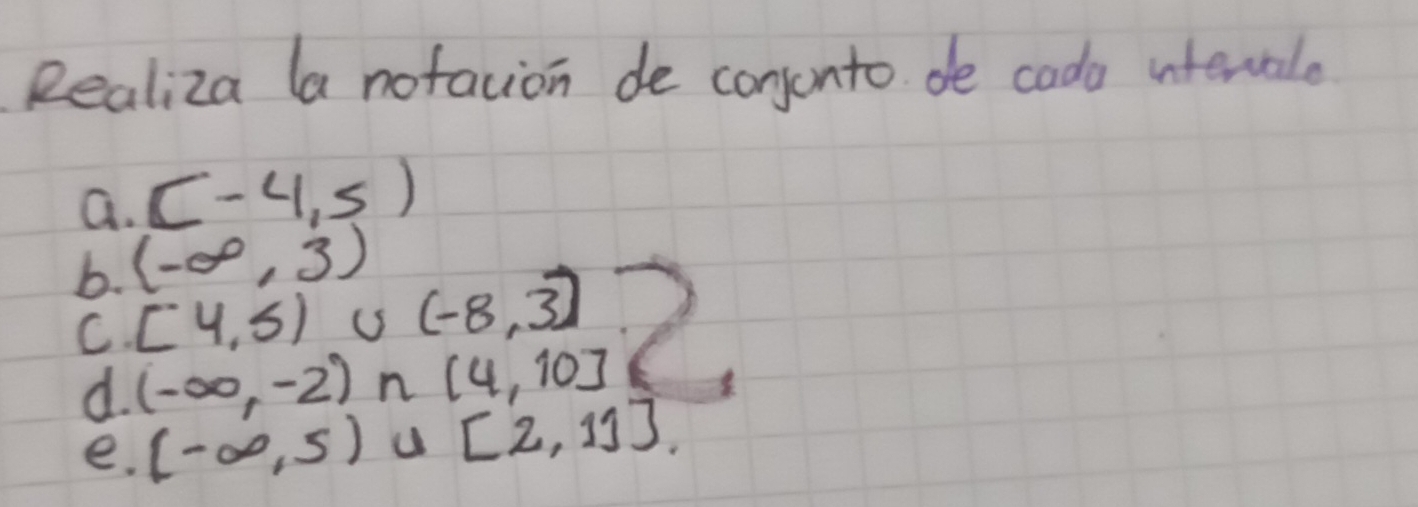 Realiza la notación de conjunto de cada intervalo
a. [-4, 5)
b. (-∞, 3)
c. [4, 5) ∪ (-8, 3]
d. (-∞, -2) ∩ [4, 10]
e. (-∞, 5) ∪ [2, 11].
2